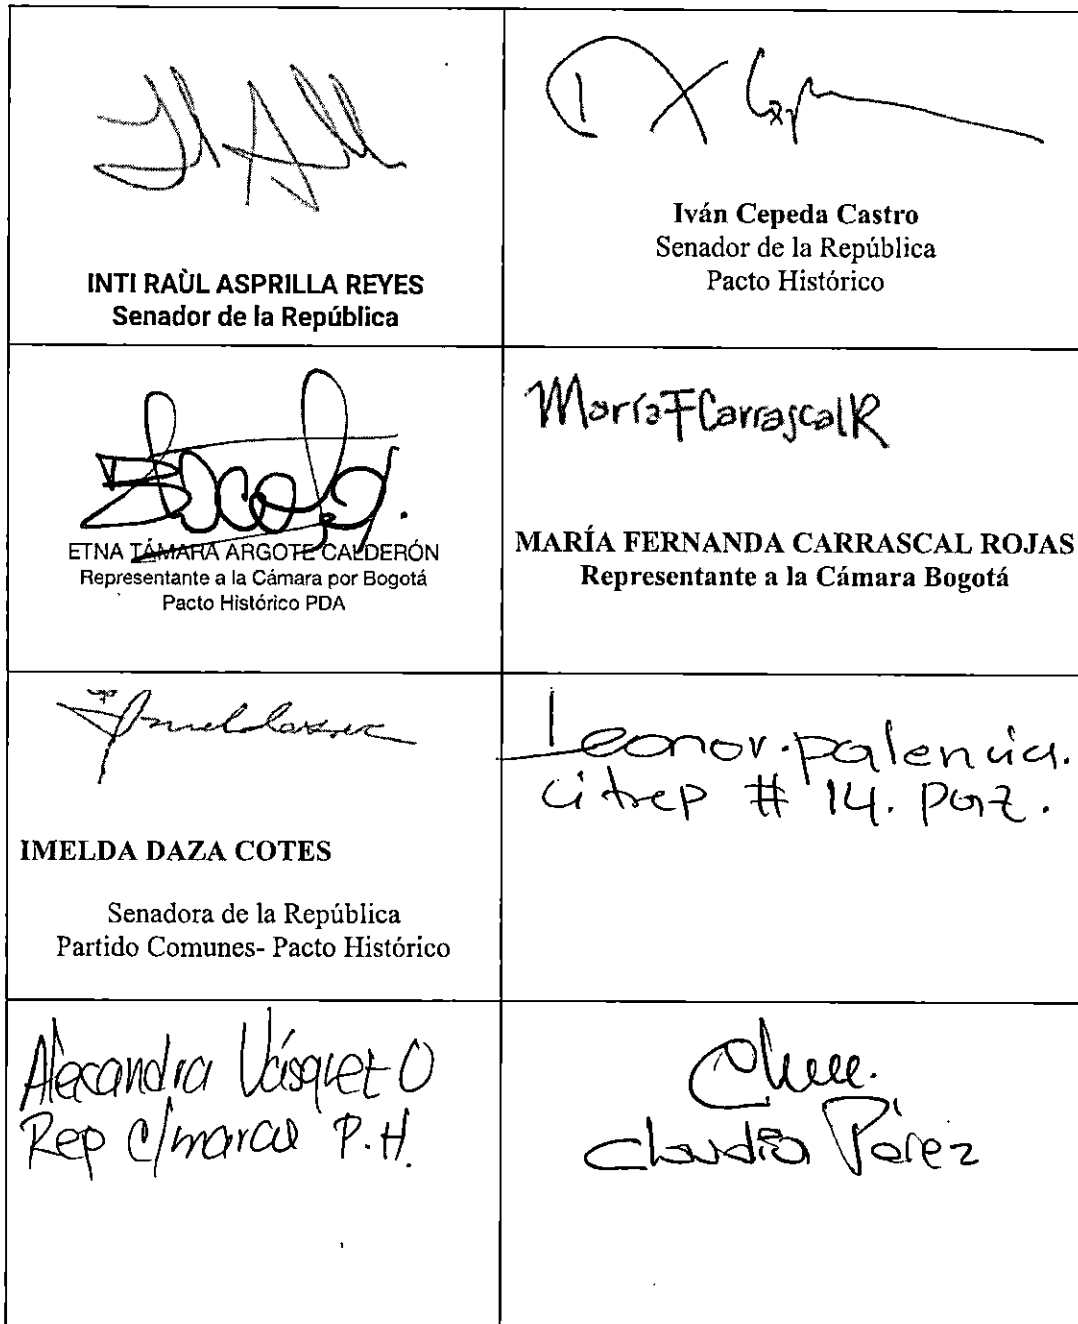 INTI RAÙL ASPRILLA REYES
Senador de la República
Iván Cepeda Castro
Senador de la República
Pacto Histórico
ETNA TÁMARA ARGOTE CALDERÓN
Representante a la Cámara por Bogotá
Pacto Histórico PDA
María F Carrascal R
MARÍA FERNANDA CARRASCAL ROJAS
Representante a la Cámara Bogotá
IMELDA DAZA COTES
Senadora de la República
Partido Comunes- Pacto Histórico
Leonor. palencia.
citrep # 14. paz.
Alexandra Vásquez O
Rep C/marca P.H.
Claudia Pérez